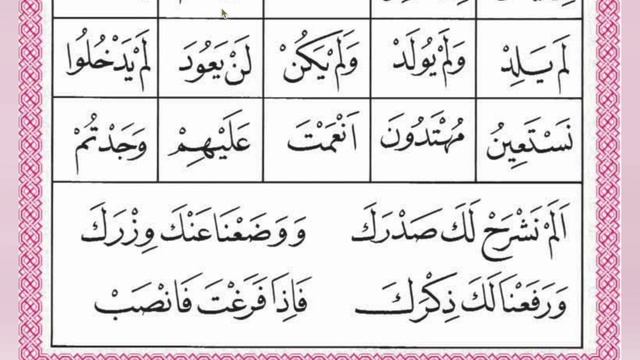 لَمْ يَلِدْ وَلَمْ يُولَدْ وَلَمْ يَكُنْ لَنْ يَعُودَ لَمْ يَدْخُلُوا
نَسْتَعِينُ مُهْتَدُونَ اَنْعَمْتَ عَلَيْهِمْ وَجَدْتُمْ
اَلَمْ نَشْرَحْ لَكَ صَدْرَكَ وَوَضَعْنَا عَنْكَ وِزْرَكَ
وَرَفَعْنَا لَكَ ذِكْرَكَ فَاِذَا فَرَغْتَ فَانْصَبْ